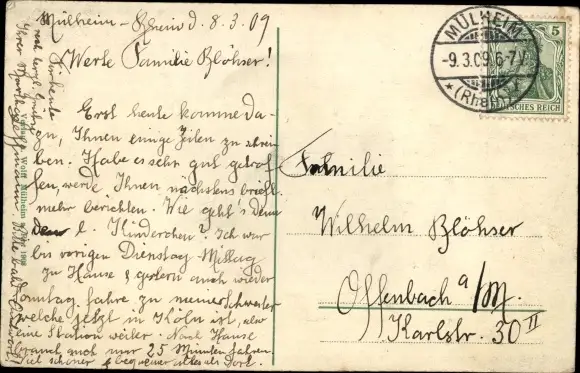 Mülheim - Rhein d. 8.3.09
Werte Familie Blöhser!
Erst heute komme da-
zu, Ihnen einige Zeilen zu schrei
ben. Habe es sehr gut getrof-
fen, werde Ihnen nächstens briefl.
mehr berichten. Wie geht's denn
den l. Kinderchen? Ich war
bis vorigen Dienstag-Mittag
zu Hause & gestern auch wieder
Sonntag fahre zu meiner Schwester
welche jetzt in Köln ist, also
eine Station weiter. Nach Hause
brauch auch nur 25 Minuten fahren.
Viel schöner & bequemer alles als dort.
Für heute
recht herzl. Grüße
Ihrer
Bitte bald Antwort
Verlag Wolff Mülheim
MÜLHEIM
-9.3.09.6-7V.
* (Rhein) *
5
DEUTSCHES REICH
Familie
Wilhelm Blöhser
Offenbach a/M.
Karlstr. 30 II